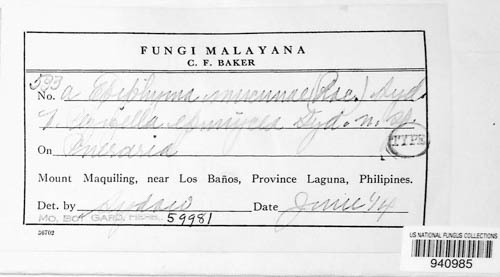 FUNGI MALAYANA
C. F. BAKER
533
No. a mucunae (Rac.) Syd.
Syd. n. sp.
On
TYPE
Mount Maquiling, near Los Baños, Province Laguna, Philipines.
Det. by Sydow Date June '14
MO. BOT. GARD. HERB. 59981
D6702
US NATIONAL FUNGUS COLLECTIONS
940985